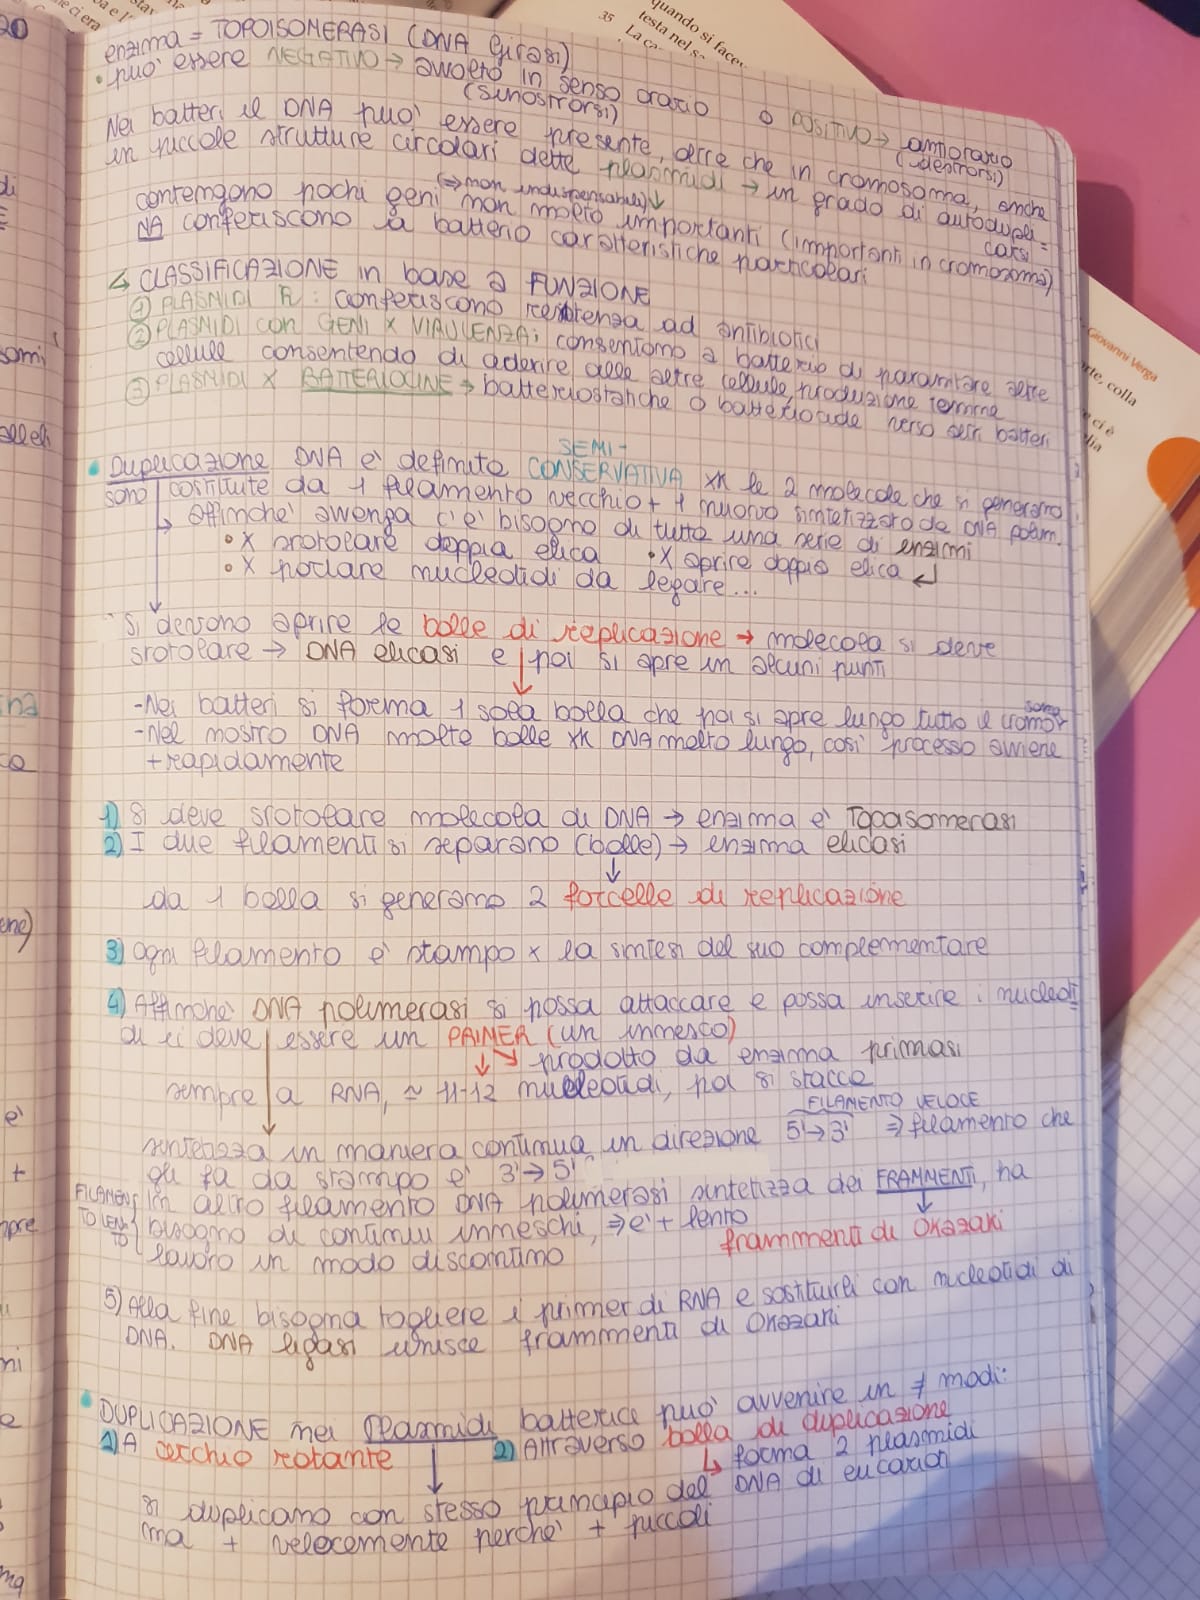 20
quando si facev
testa nel s
35
La ca
Giovanni Verga
rte, colla
ci è
lia
enzima = TOPOISOMERASI (DNA Girasi)
• può essere NEGATIVO → avvolto in senso orario o POSITIVO → antiorario
(sinostrorsi) (destrorsi)
Nei batteri il DNA può essere presente, oltre che in cromosoma, anche
in piccole strutture circolari dette plasmidi → in grado di autodupli=
carsi
(⇒ non indispensabili)↓
contengono pochi geni non molto importanti (importanti in cromosoma)
MA conferiscono a batterio caratteristiche particolari
↳ CLASSIFICAZIONE in base a FUNZIONE
① PLASMIDI R: conferiscono resistenza ad antibiotici
② PLASMIDI con GENI x VIRULENZA: consentono a batterio di parassitare altre
cellule consentendo di aderire alle altre cellule, produzione tossine
③ PLASMIDI x BATTERIOCINE → batteriostatiche o battericide verso altri batteri
SEMI-
• Duplicazione DNA è definita CONSERVATIVA xk le 2 molecole che si generano
sono costituite da 1 filamento vecchio + 1 nuovo sintetizzato da DNA polim.
↳ affinché avvenga c'è bisogno di tutta una serie di enzimi
• x srotolare doppia elica • x aprire doppia elica ↲
• x portare nucleotidi da legare...
Si devono aprire le bolle di replicazione → molecola si deve
srotolare → DNA elicasi e poi si apre in alcuni punti
- Nei batteri si forma 1 sola bolla che poi si apre lungo tutto il cromosoma
- Nel nostro DNA molte bolle xk DNA molto lungo, così processo avviene
+ rapidamente
1) Si deve srotolare molecola di DNA → enzima è Topoisomerasi
2) I due filamenti si separano (bolle) → enzima elicasi
↓
da 1 bolla si generano 2 forcelle di replicazione
3) Ogni filamento è stampo x la sintesi del suo complementare
4) Affinché DNA polimerasi si possa attaccare e possa inserire i nucleoti
di ci deve essere un PRIMER (un innesco)
↓ ↘ prodotto da enzima primasi
sempre a RNA, ≃ 11-12 nucleotidi, poi si stacca
FILAMENTO VELOCE
sintetizza in maniera continua in direzione 5'→3' ⇒ filamento che
gli fa da stampo è 3'→5'
FILAMEN In altro filamento DNA polimerasi sintetizza dei FRAMMENTI, ha
TO LEN bisogno di continui inneschi, ⇒ è + lento ↓
TO lavoro in modo discontinuo frammenti di Okazaki
5) Alla fine bisogna togliere i primer di RNA e sostituirli con nucleotidi di
DNA. DNA ligasi unisce frammenti di Okazaki
• DUPLICAZIONE nei Plasmidi batterica può avvenire in ≠ modi:
1) A cerchio rotante 2) Attraverso bolla di duplicazione
↳ forma 2 plasmidi
si duplicano con stesso principio del DNA di eucarioti
ma + velocemente perché + piccoli